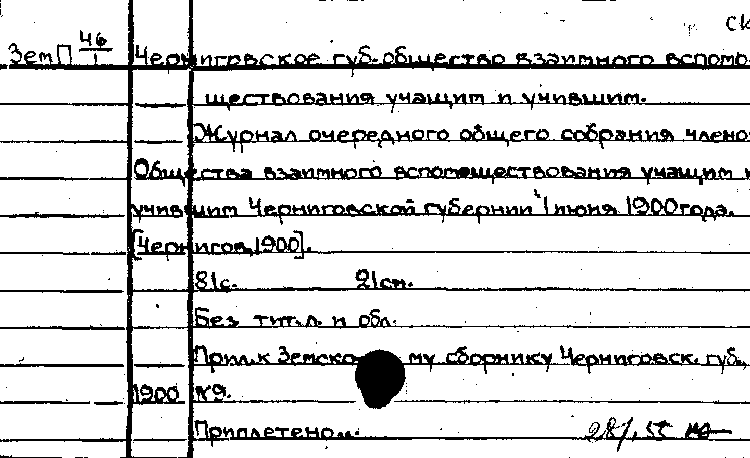 ск
ЗемП 46/1 Черниговское губ. общество взаимного вспомо-
ществования учащим и учившим.
Журнал очередного общего собрания члено
Общества взаимного вспомоществования учащим и
учившим Черниговской губернии 1 июня 1900 года.
[Чернигов, 1900].
81с. 21см.
Без тит. л. и обл.
Прил. к Земско му сборнику Черниговск. губ.,
1900 №9.
Приплетено